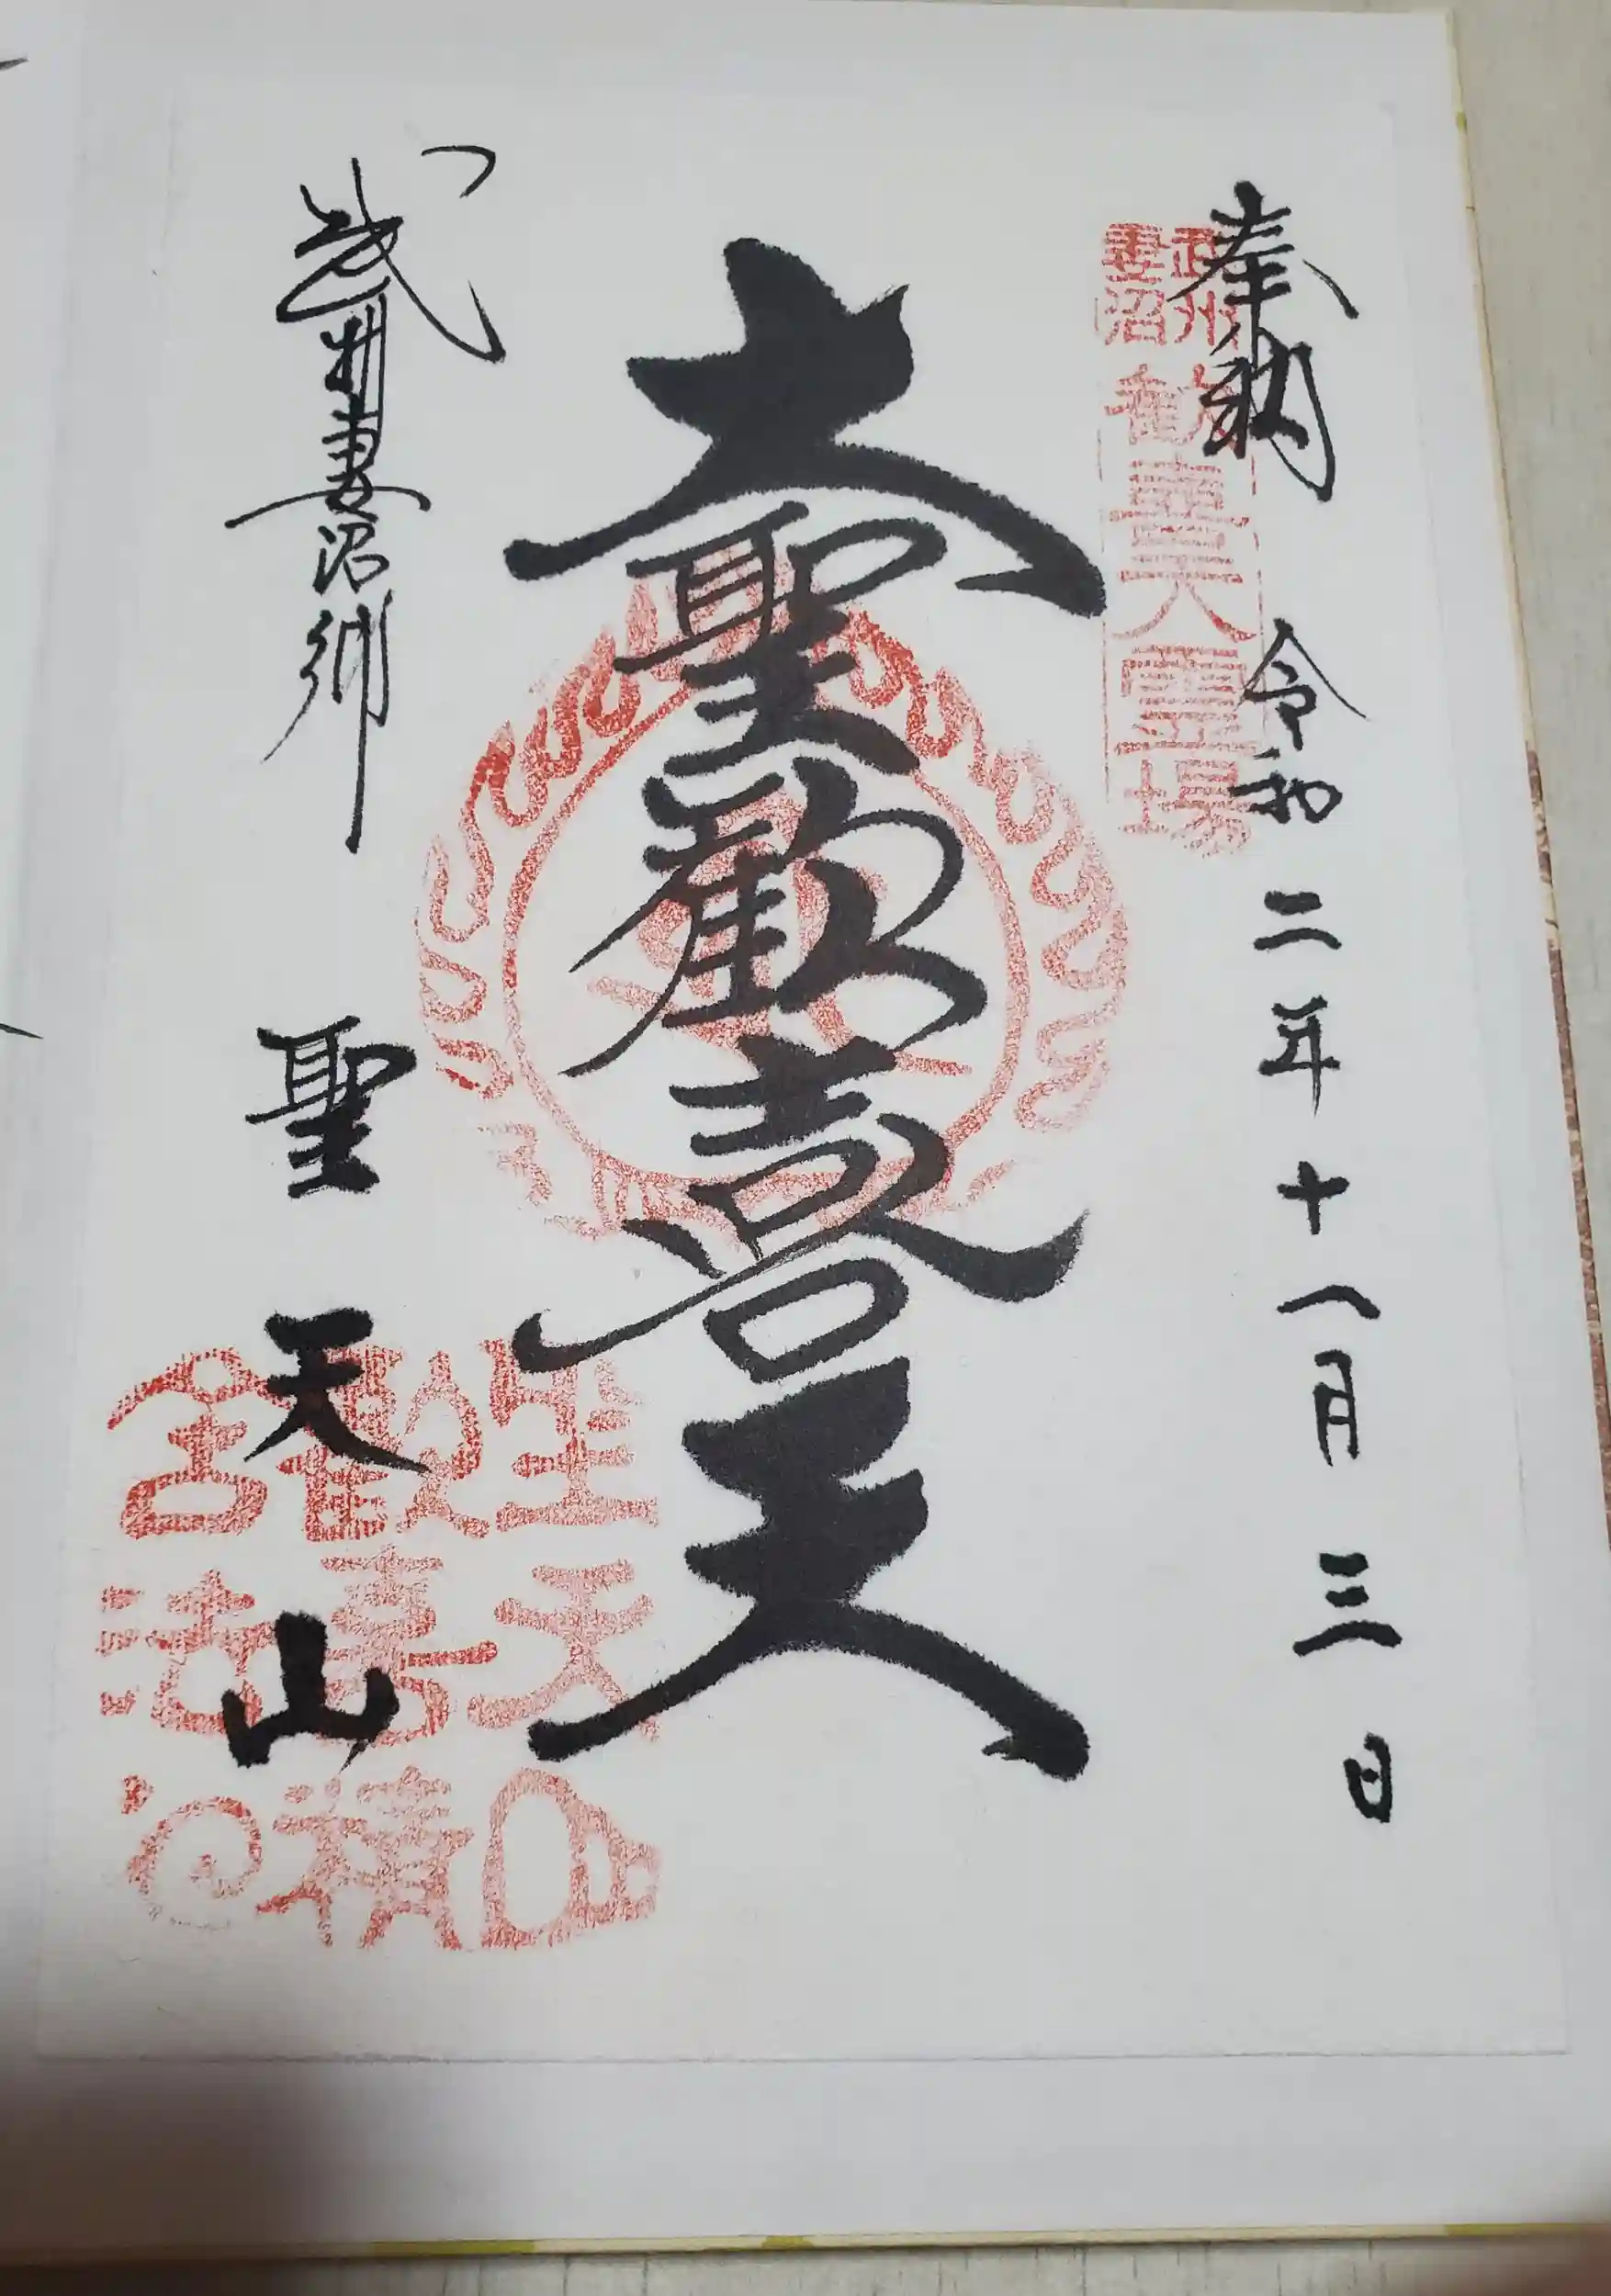 奉納 令和二年十一月三日
武州
妻沼
歓喜天霊場
大聖歓喜天
武州妻沼郷 聖天山